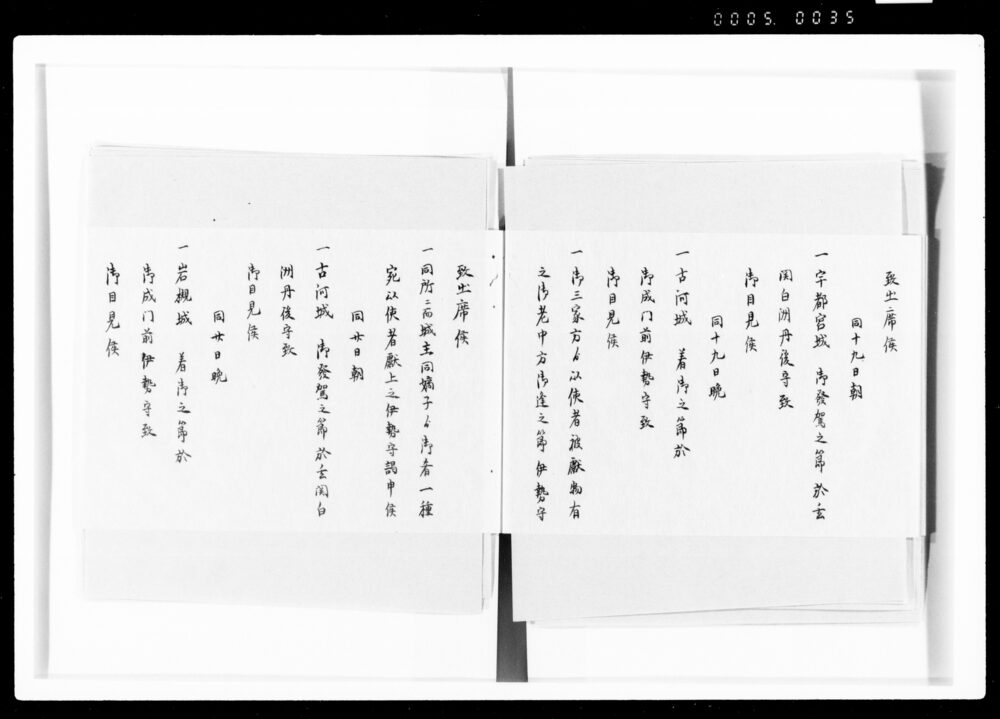 0005. 0035
致出席候
同十九日朝
一宇都宮城　御發駕之節於玄
関白洲丹後守致
御目見候
同十九日晩
一古河城　着御之節於
御成门前伊勢守致
御目見候
一御三家方ゟ以使者被献物有
之御老中方御逢之節伊勢守
致出席候
一同所ニ而城主同嫡子ゟ御肴一種
宛以使者献上之伊勢守謁申候
同廿日朝
一古河城　御發駕之節於玄関白
洲丹後守致
御目見候
同廿日晩
一岩槻城　着御之節於
御成门前伊勢守致
御目見候